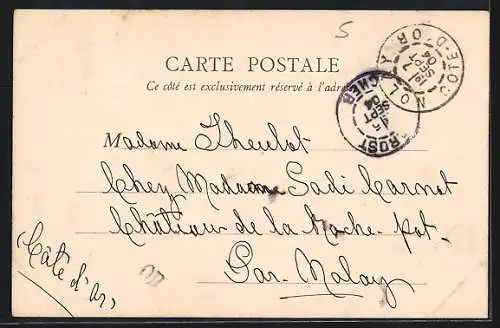 5
CARTE POSTALE
Ce côté est exclusivement réservé à l'adre
NOLAY
CÔTE-D'OR
SEPT
04
ROST
CHER
15
SEPT
04
Madame Theulot
Chez Madame Sadi Carnot
Château de la Roche-pot-
Par-Nolay
Côte d'or